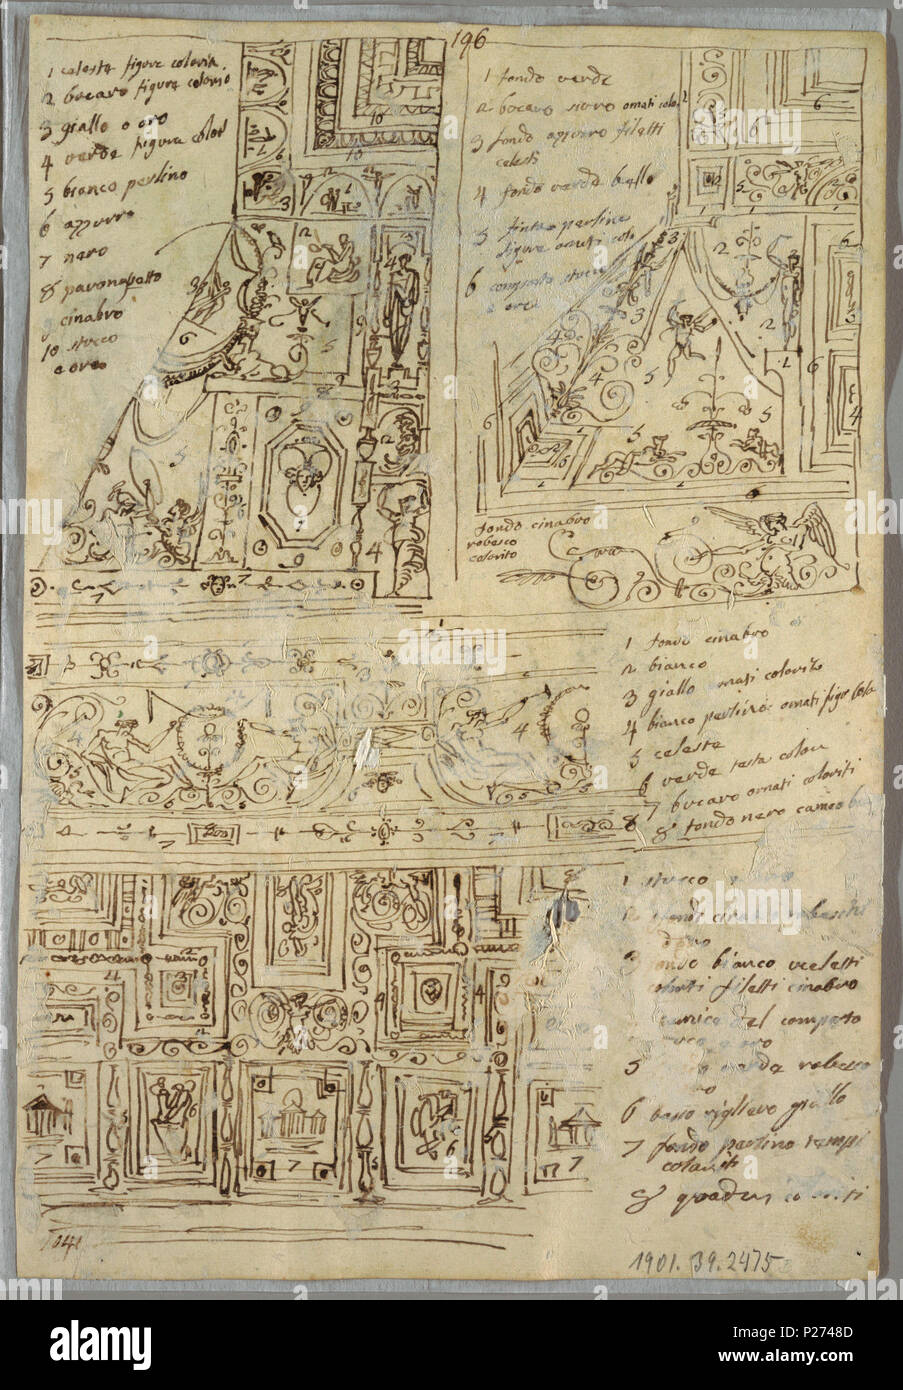 196
1 celeste figure colorite
2 bucaro figure colorito
3 giallo o oro
4 verde figure color
5 bianco perlino
6 azzurro
7 nero
8 pavonazzatto
9 cinabro
10 stucco
e oro
1 fondo verde
2 bucaro scuro ornati color
3 fondo azzurro filetti
celesti
4 fondo verde
5 tinta perlina
figure ornati colo
6 comparto stucco
e oro
fondo cinabro
rabesco
colorito
1 fondo cinabro
2 bianco
3 giallo ornati colorito
4 bianco perlino ornati figure
5 celeste
6 verde testa colori
7 bucaro ornati coloriti
8 fondo nero cameo
1 stucco
fondi cinabro rabeschi
d'oro
3 fondo bianco uceletti
coloriti filetti cinabro
del comparto
oro
5 verde rabesco
6 basso riglievo giallo
7 fondo perlino
coloriti
8 quadri
1901.39.2475
alamy
Image ID: P2748D
www.alamy.com